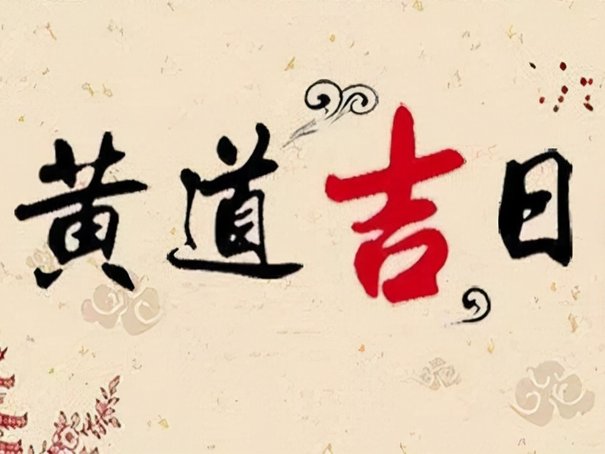 黄道吉日